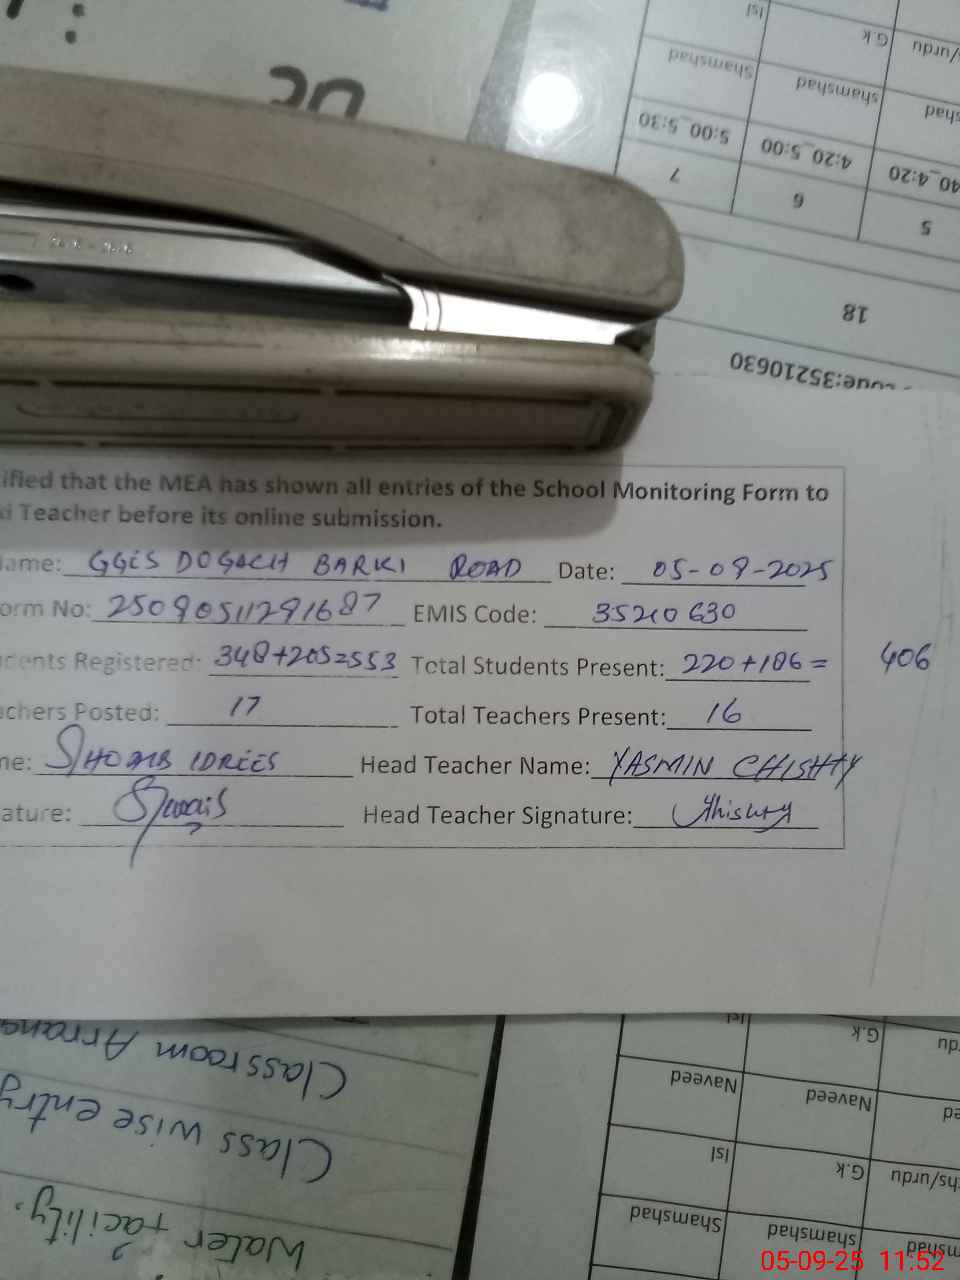 UC
Isl
G.k
/urdu
Shamshad
shamshad
5:00_5:30
4:20_5:00
40_4:20
7
6
5
18
code:35210630
ified that the MEA has shown all entries of the School Monitoring Form to
Teacher before its online submission.
ame: GGES DOGACH BARKI ROAD Date: 05-09-2025
orm No: 25090511291687 EMIS Code: 35210630
dents Registered: 348+205=553 Total Students Present: 220+186= 406
chers Posted: 17 Total Teachers Present: 16
me: SHOAIB IDREES Head Teacher Name: YASMIN CHISHTY
ature: Head Teacher Signature: Chishty
Classroom Arrang
Class wise entry
Water facility.
Isl
G.k
Naveed
Naveed
Isl
G.k
hs/urdu/sh
Shamshad
shamshad
05-09-25 11:52